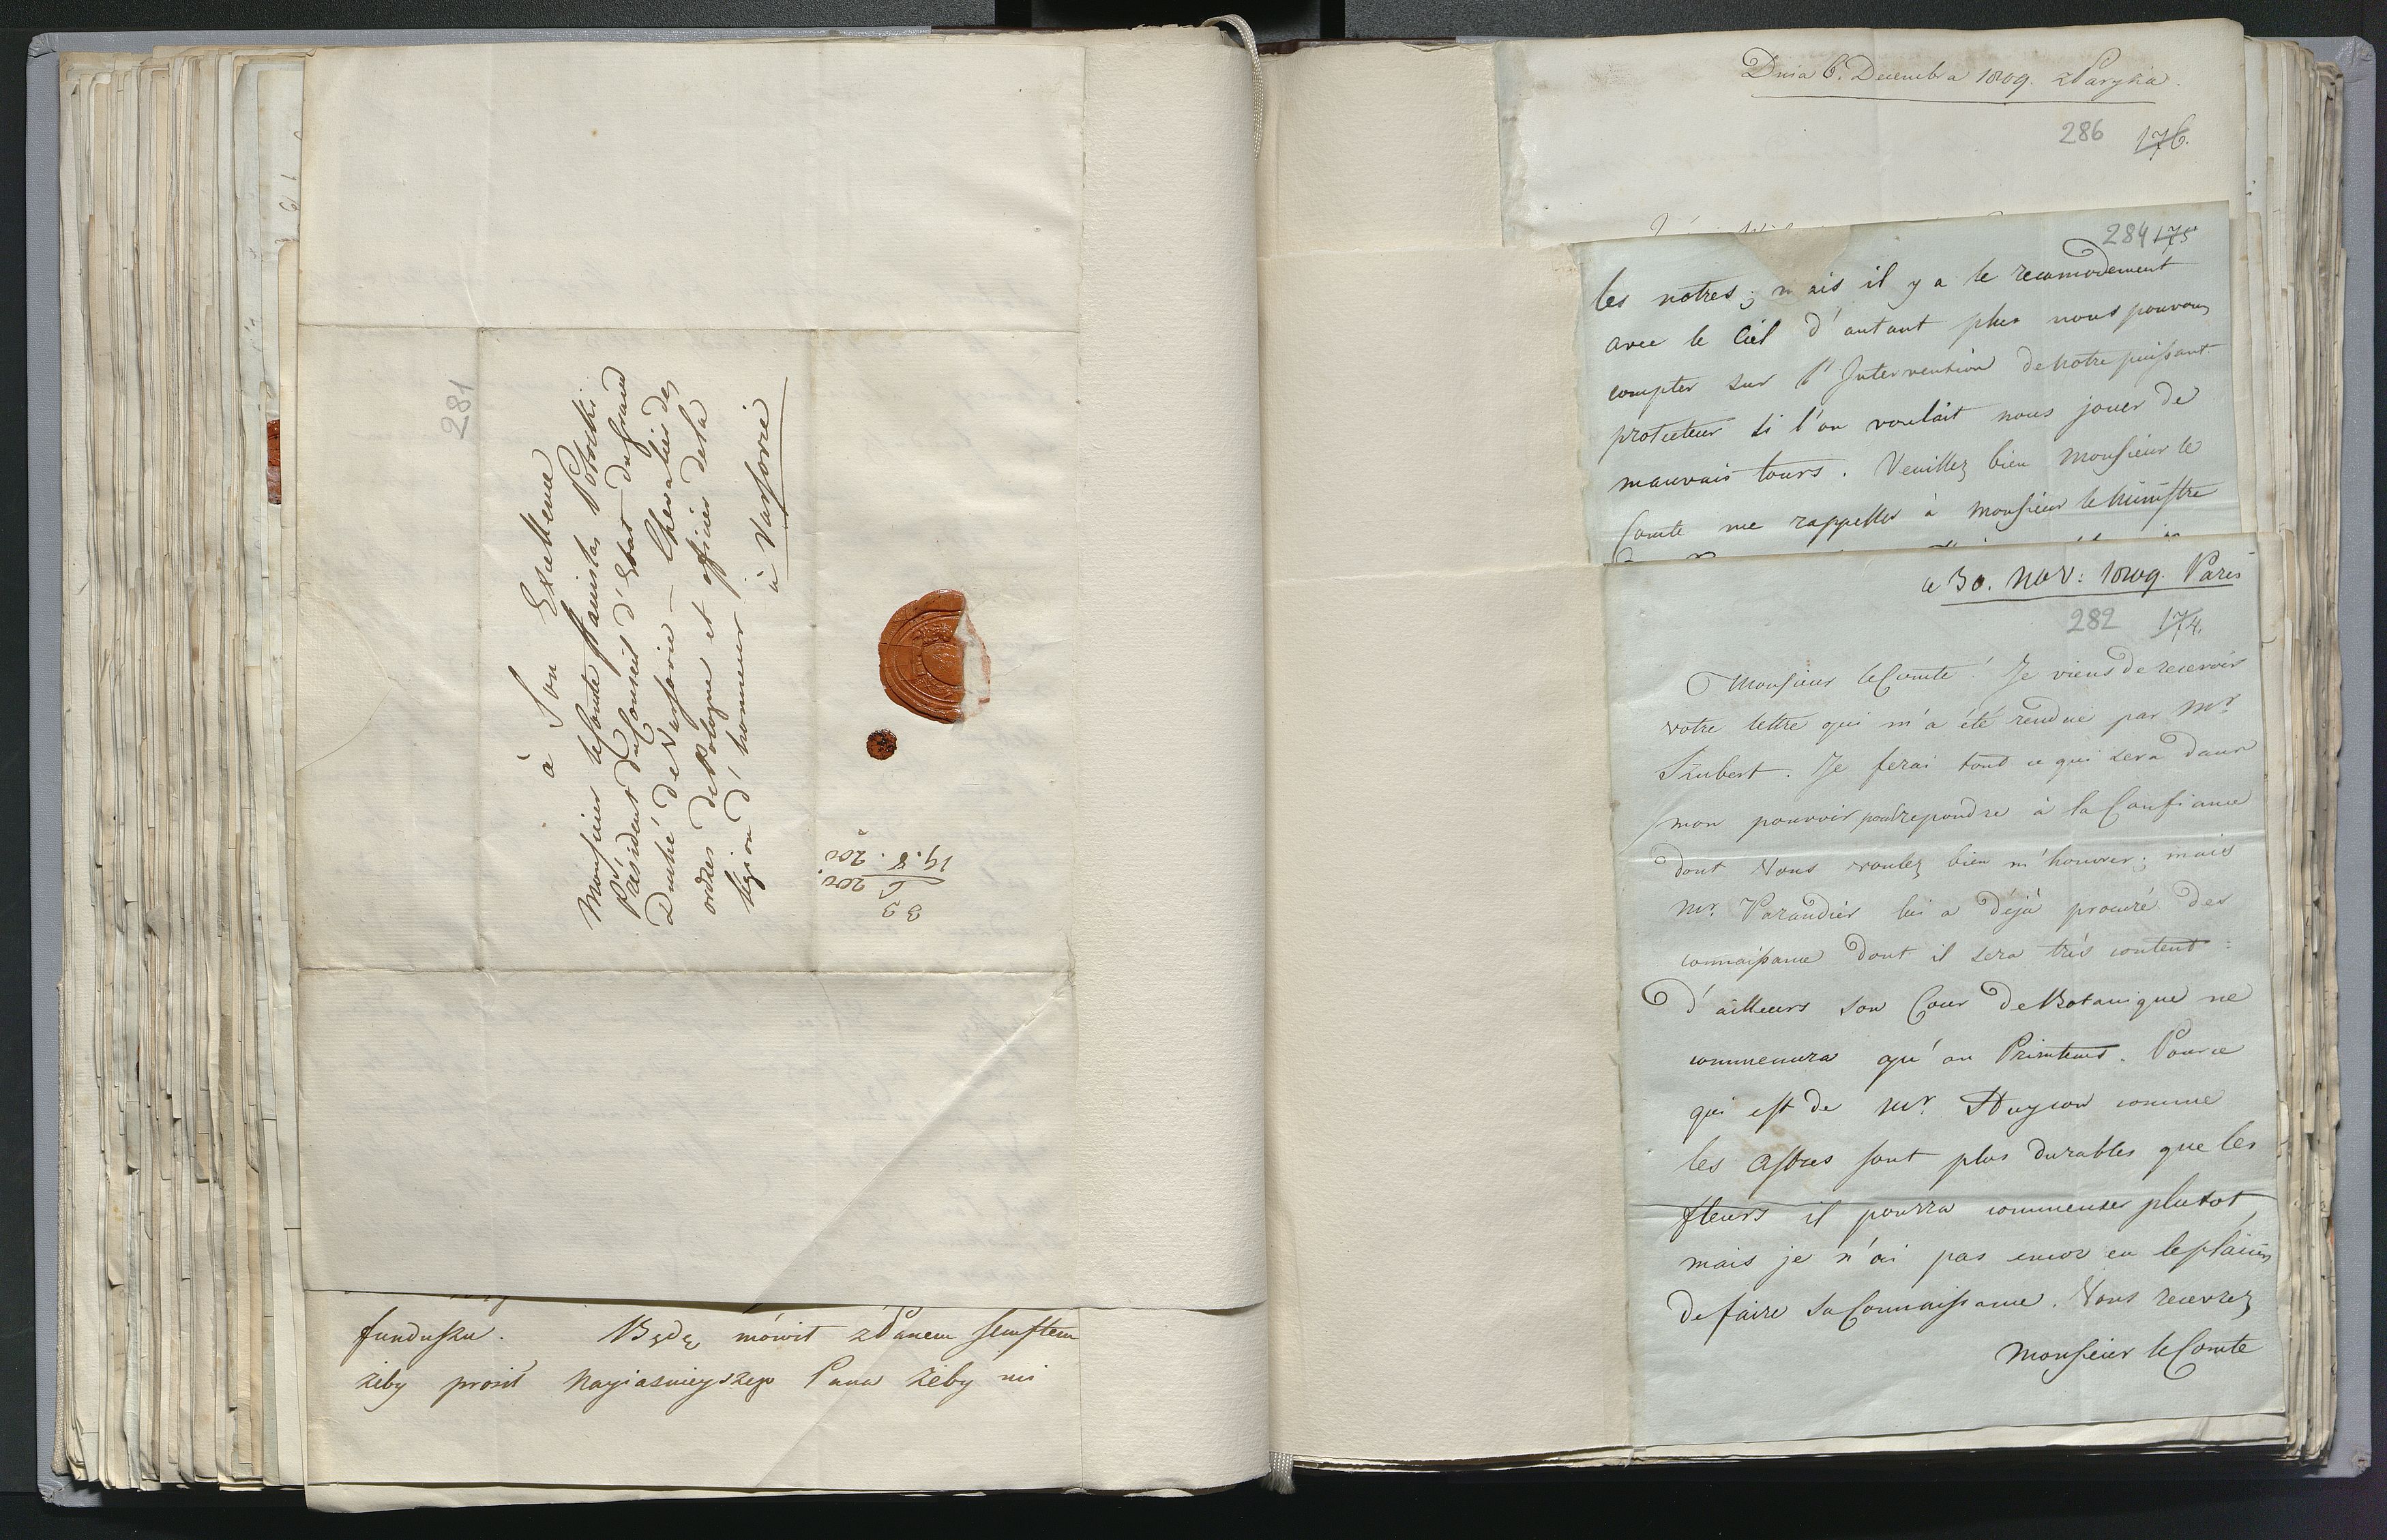 281
à Son Excellence
Monsieur le Comte Stanislas Potocki
Président du Conseil d'Etat du grand
Duché de Varsovie – Chevalier des
ordres de Pologne et officier de la
légion d'honneur
à Varsovie
200
19.8.
200.
33
funduszu. Będę mówił z Panem
żeby prosił Nayiaśnieyszego Pana żeby mi
Dnia 6. Decembra 1809. z Paryża.
286 176.
284 175
les notres; mais il y a le recomodement
avec le Ciel d'autant plus nous pouvons
compter sur l'Intervention de notre puissant
protecteur si l'on voulait nous jouer de
mauvais tours. Veuillez bien Monsieur le
Comte me rappeller à Monsieur le Ministre
ce 30. Nov: 1809. Paris
282 174.
Monsieur le Comte! Je viens de recevoir
votre lettre qui m'a été rendue par Mr.
Szubert. Je ferai tout ce qui sera dans
mon pouvoir pour repondre à la Confiance
dont Vous voulez bien m'honorer; mais
Mr. Parandier lui a déjà procuré des
connaissance dont il sera très content:
d'ailleurs son Cour de Botanique ne
commencera qu'au Printems. Pour ce
qui est de Mr. comme
les Astres sont plus durables que les
fleurs il pourra commencer plutot,
mais je n'ai pas encor eu le plaisir
de faire sa Connaissance. Vous recevrez
Monsieur le Comte